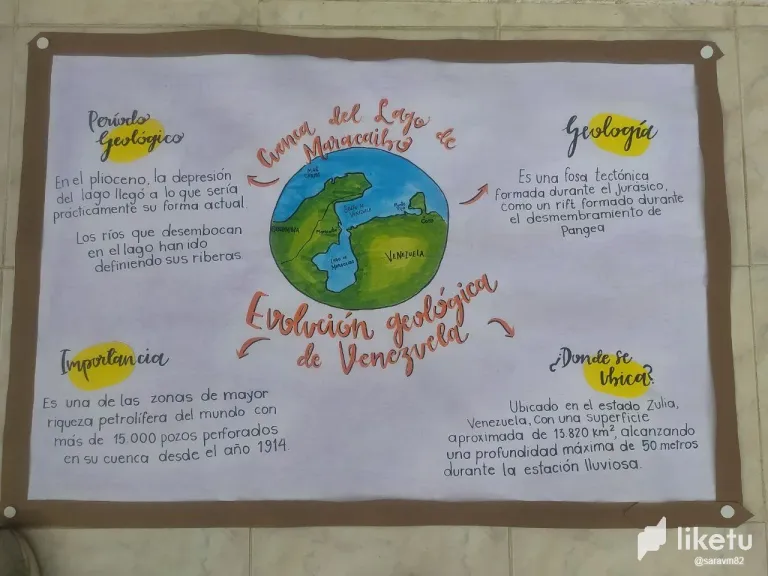 Cuenca del Lago de
Maracaibo
Período
Geológico
En el plioceno, la depresión
del lago llegó a lo que sería
prácticamente su forma actual.
Los ríos que desembocan
en el lago han ido
definiendo sus riberas
Geología
Es una fosa tectónica
formada durante el jurásico,
como un rift formado durante
el desmembramiento de
Pangea
VENEZUELA
Evolución geológica
de Venezuela
Importancia
Es una de las zonas de mayor
riqueza petrolífera del mundo con
más de 15.000 pozos perforados
en su cuenca desde el año 1914.
¿Donde se
Ubica?
Ubicado en el estado Zulia,
Venezuela, con una superficie
aproximada de 13.820 km², alcanzando
una profundidad máxima de 50 metros
durante la estación lluviosa.
liketu
@saravm82